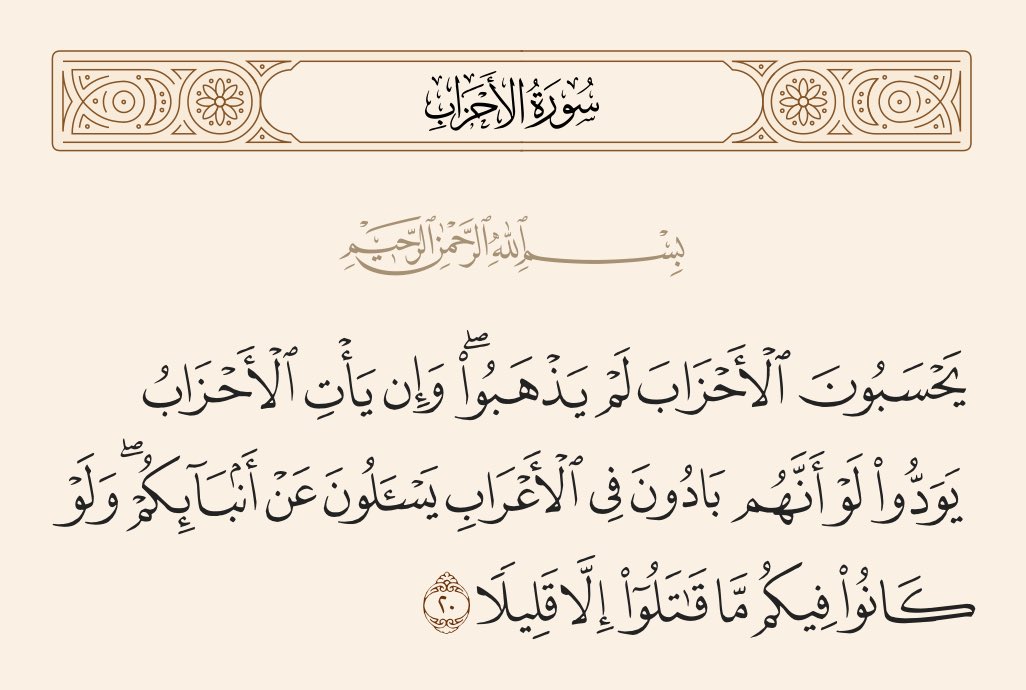 سُورَةُ الأَحْزَابِ
بِسْمِ ٱللَّهِ ٱلرَّحْمَٰنِ ٱلرَّحِيمِ
يَحْسَبُونَ ٱلْأَحْزَابَ لَمْ يَذْهَبُوا۟ ۖ وَإِن يَأْتِ ٱلْأَحْزَابُ
يَوَدُّوا۟ لَوْ أَنَّهُم بَادُونَ فِى ٱلْأَعْرَابِ يَسْـَٔلُونَ عَنْ أَنۢبَآئِكُمْ ۖ وَلَوْ
كَانُوا۟ فِيكُم مَّا قَـٰتَلُوٓا۟ إِلَّا قَلِيلًا ٢٠